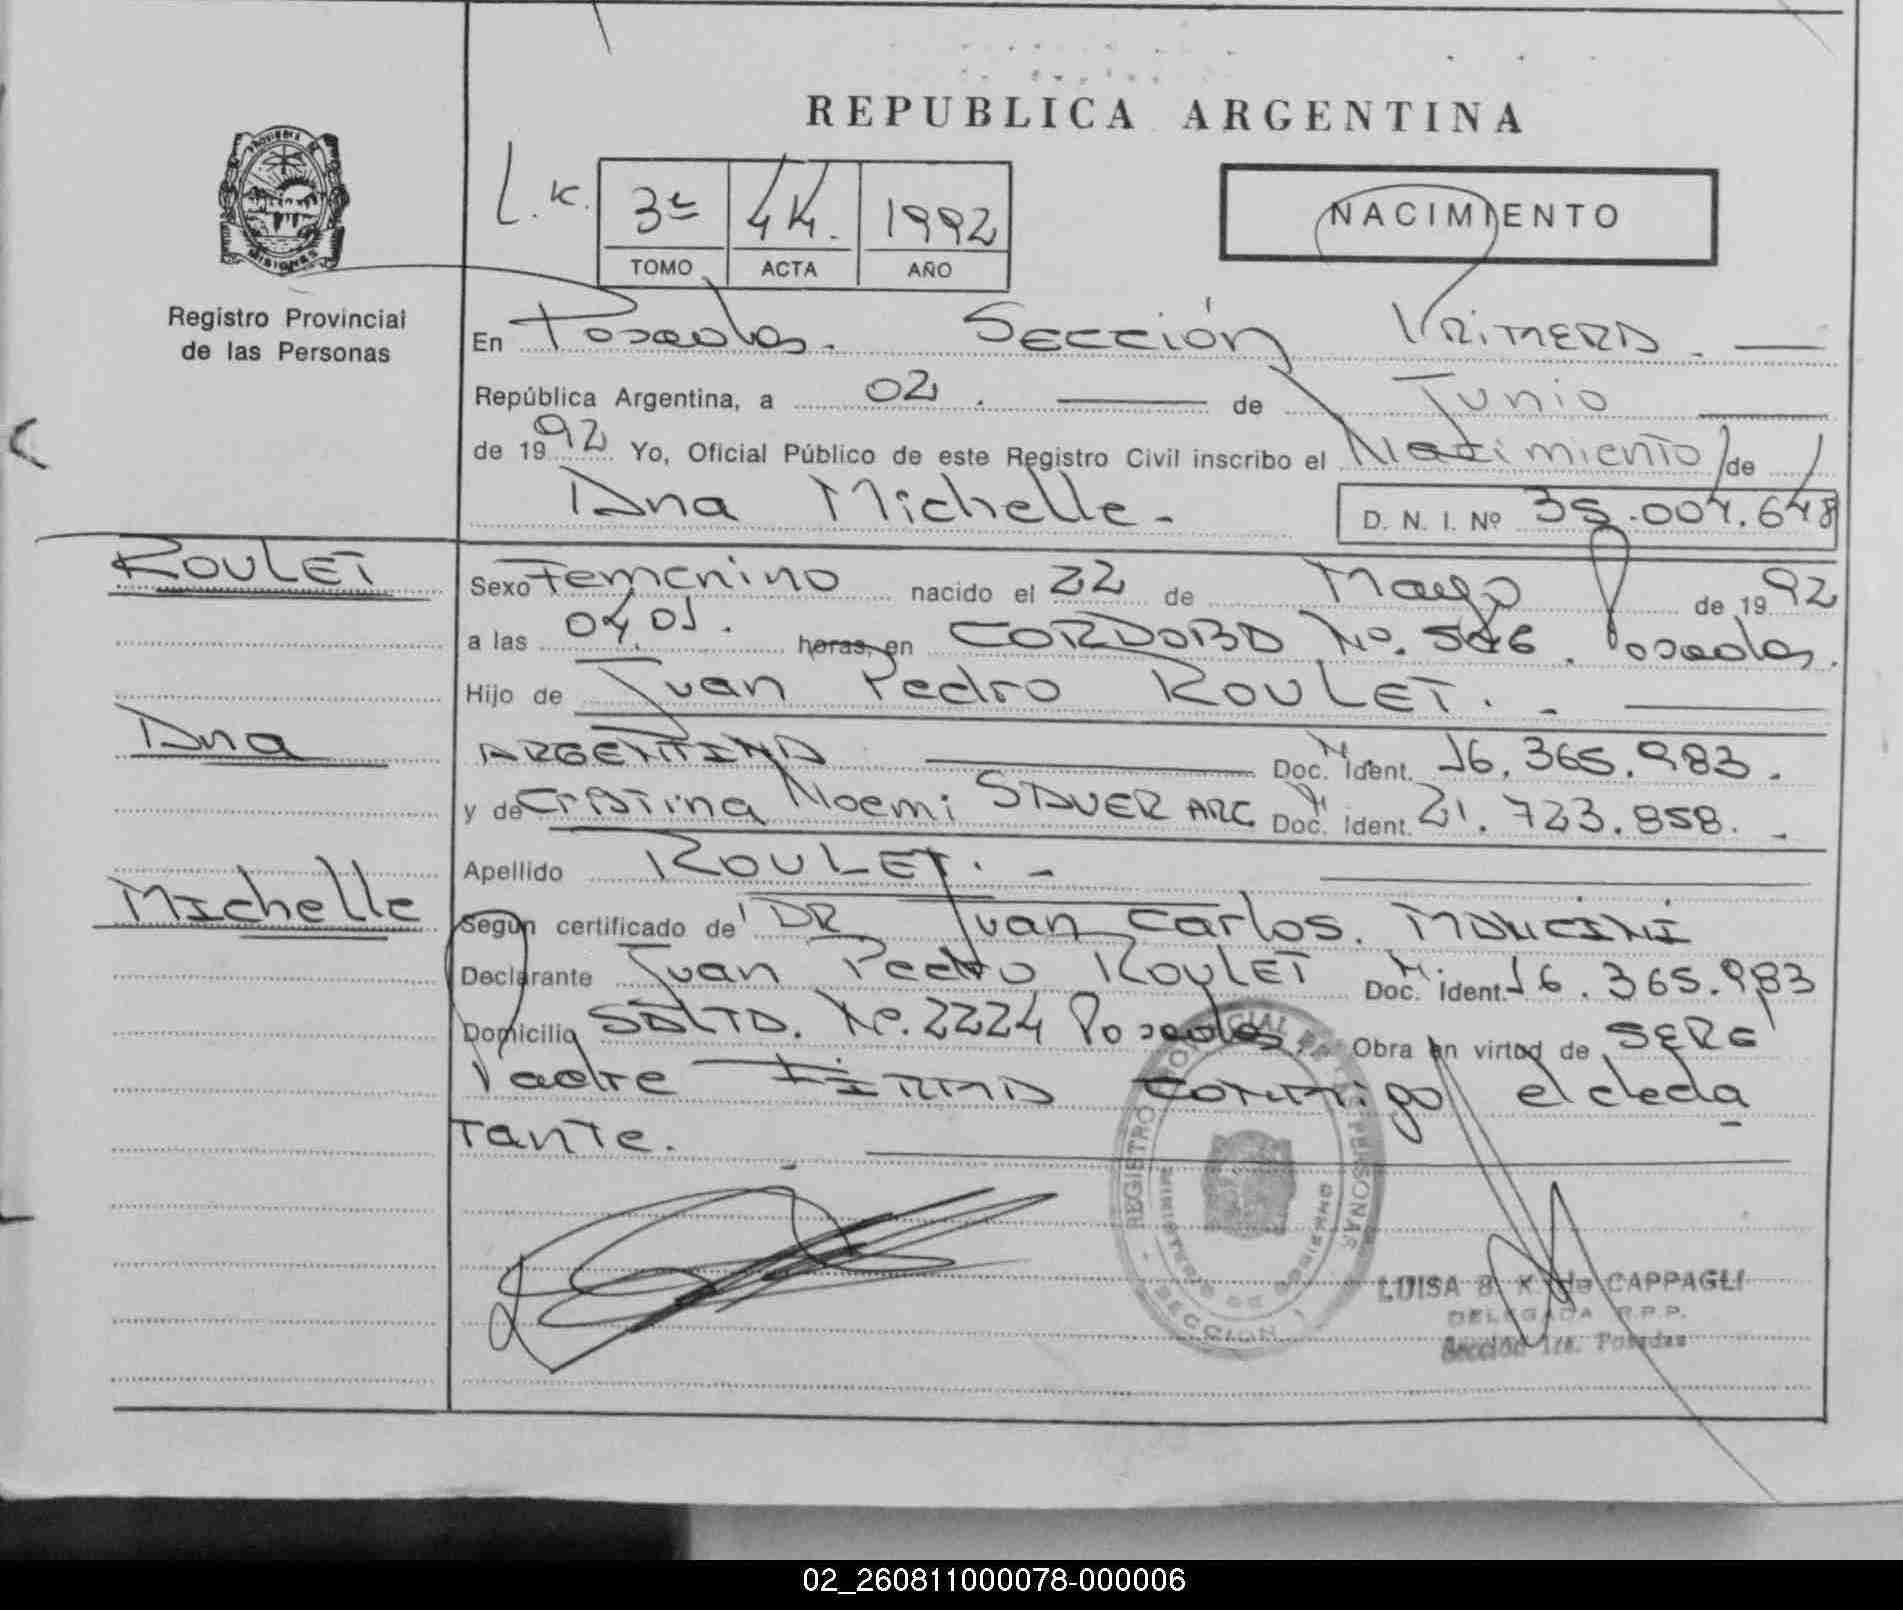 REPUBLICA ARGENTINA
PROVINCIA DE MISIONES
Registro Provincial
de las Personas
L.K. 3º 44. 1992
TOMO ACTA AÑO
NACIMIENTO
En Posadas. Sección Primera.
República Argentina, a 02. de Junio
de 1992 Yo, Oficial Público de este Registro Civil inscribo el Nacimiento de
Ana Michelle. D. N. I. Nº 35.004.648
ROULET
Sexo Femenino nacido el 22 de Mayo de 1992
a las 04,01. horas, en CORDOBA No. Posadas.
Hijo de Juan Pedro ROULET.
Ana
ARGENTINA Doc. Ident. 16.365.983.
y de Cristina Noemi STAUER ARG Doc. Ident. 21.723.858.
Apellido ROULET.
Michelle
Según certificado de DR Juan Carlos. MANCINI
Declarante Juan Pedro ROULET Doc. Ident. 16.365.983
Domicilio SALTA. No. 2224 Posadas. Obra en virtud de SER el
Padre FIRMA Conmigo el decla
rante.
REGISTRO PROVINCIAL DE LAS PERSONAS
MINISTERIO DE GOBIERNO
SECCION 1
LUISA B. K. de CAPPAGLI
DELEGADA R.P.P.
Sección 1ra. Posadas
02_260811000078-000006